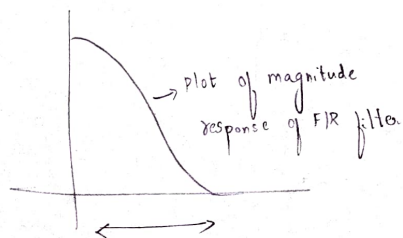 Plot of magnitude
response of FIR filter